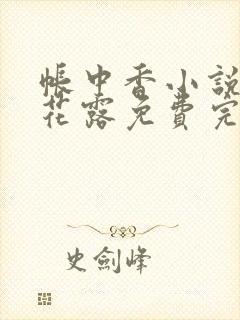 帳中香小說
花露免費完
史劍峰